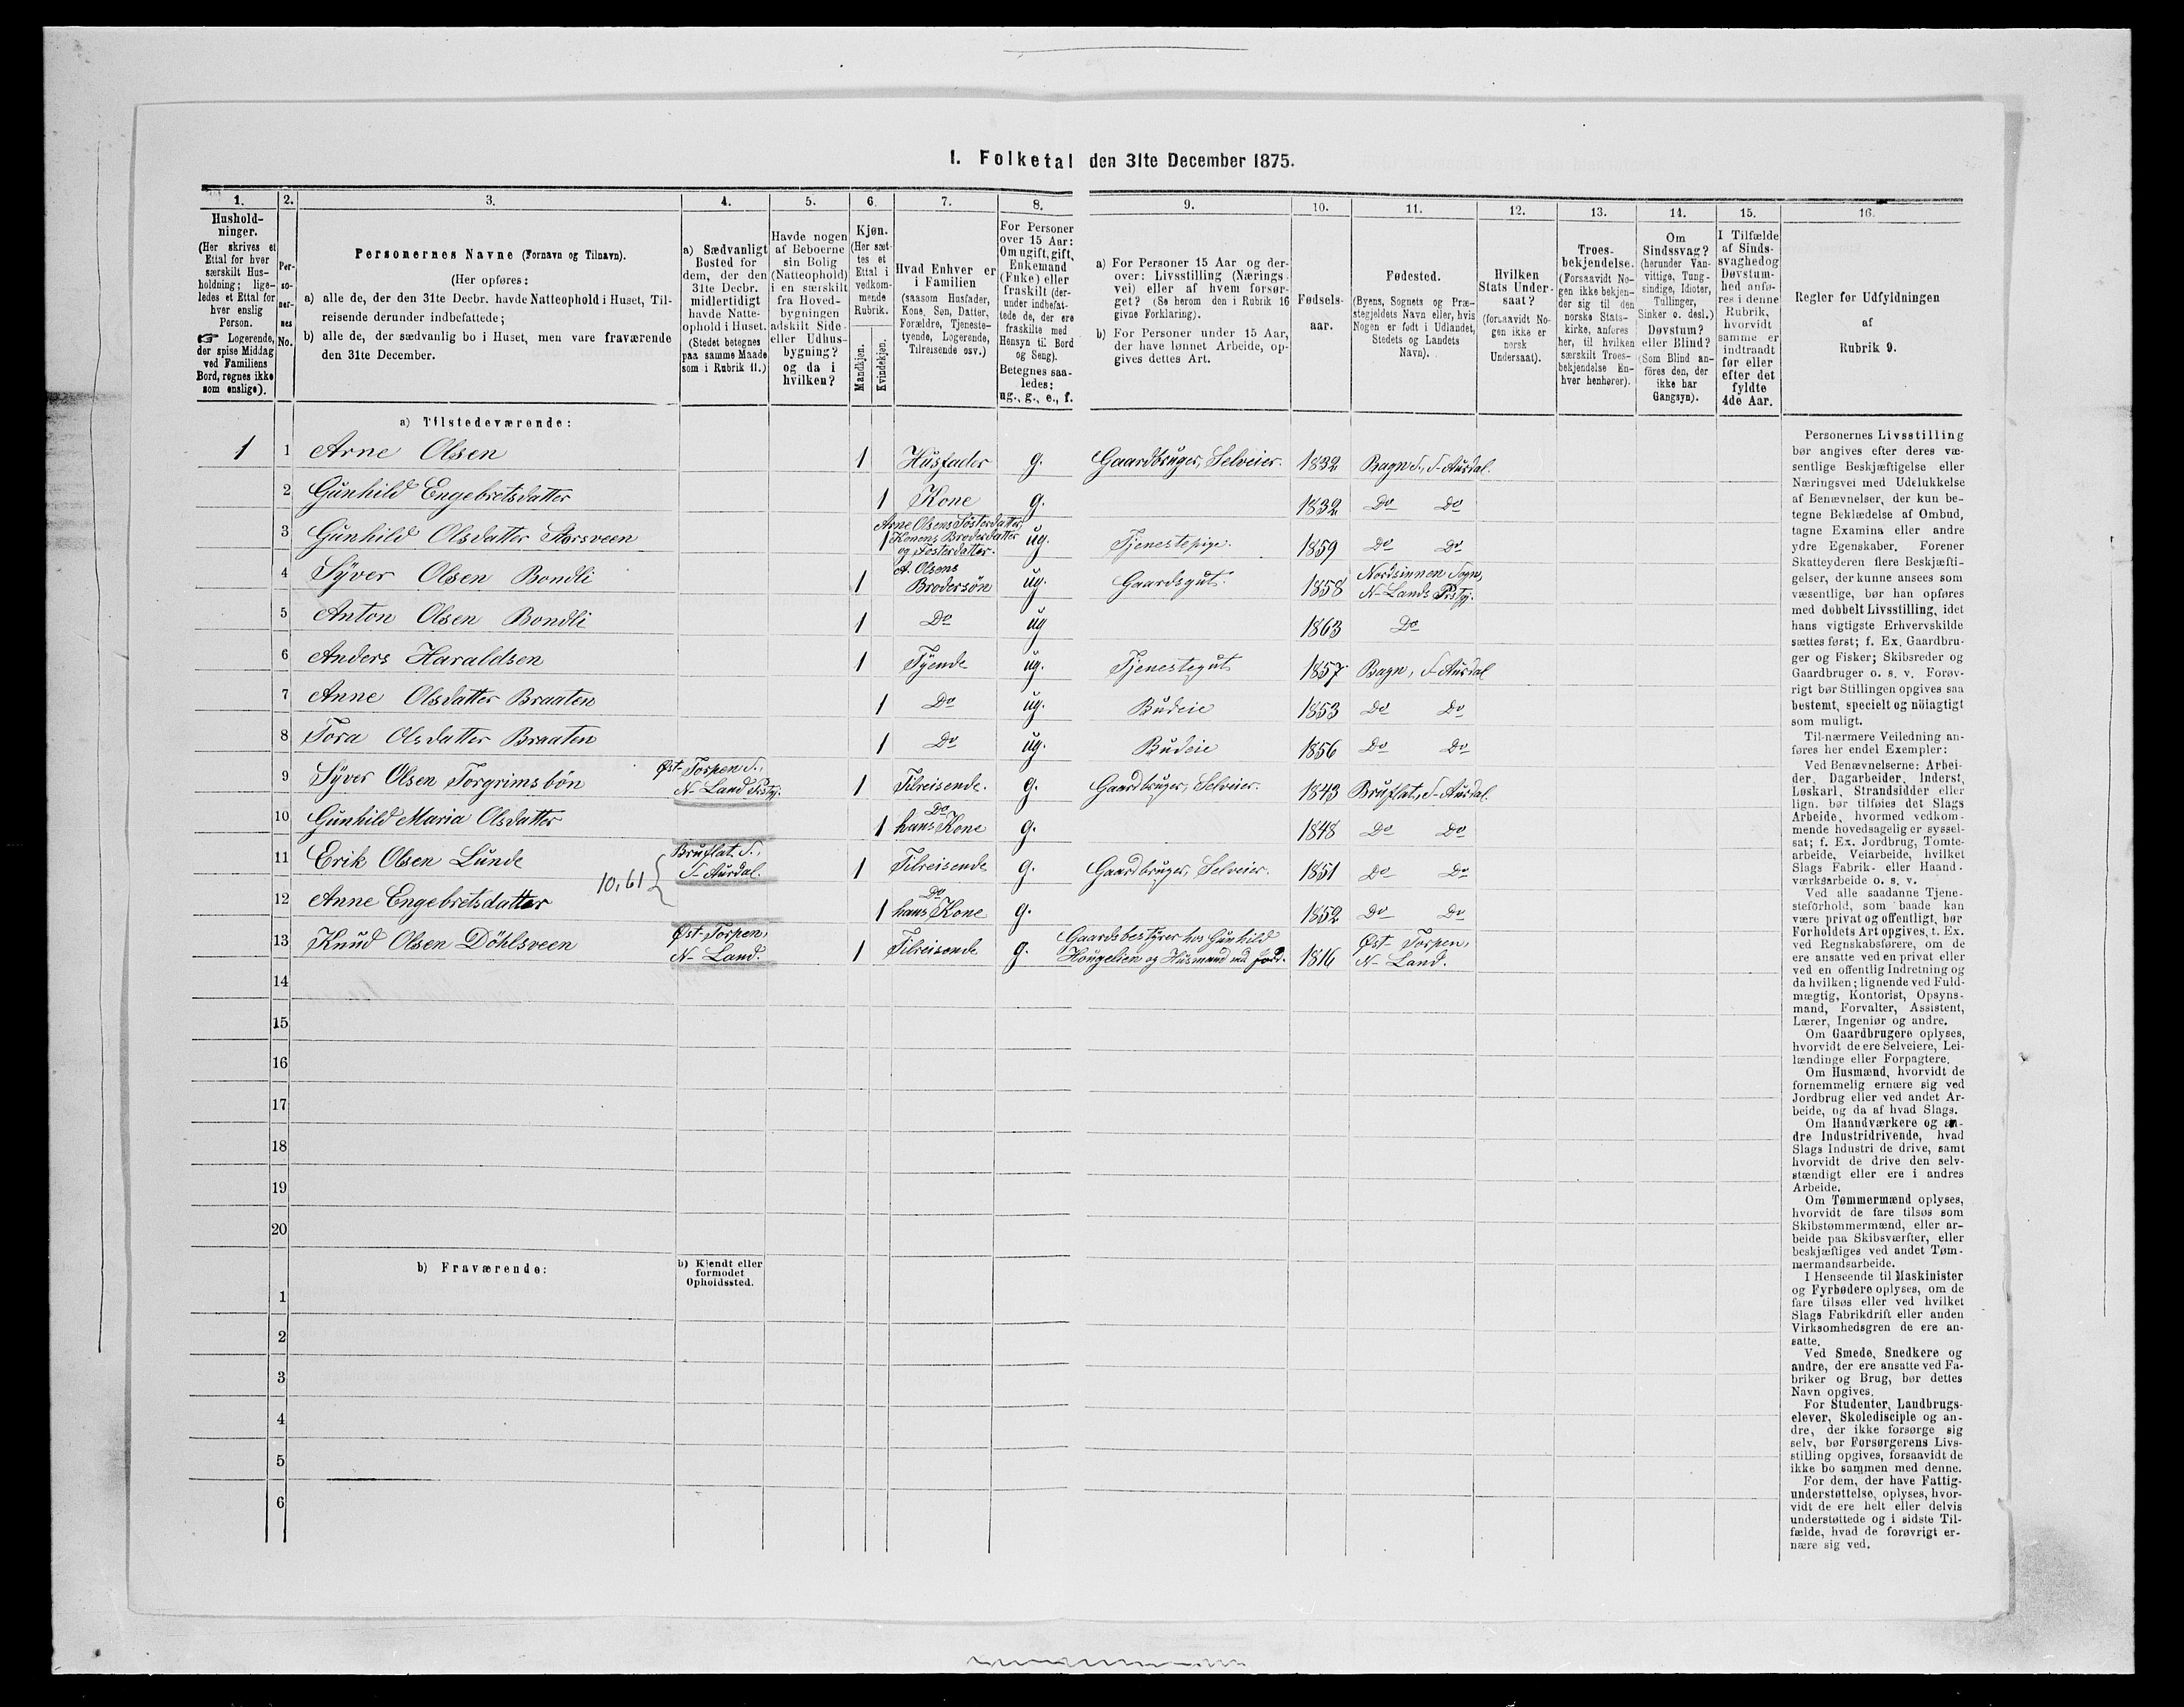 I. Folketal den 31te December 1875.
1. 2. 3. 4. 5. 6. 7. 8. 9. 10. 11. 12. 13. 14. 15. 16.
Hushold-
ninger.
(Her skrives et
Ettal for hver
særskilt Hus-
holdning; lige-
ledes et Ettal for
hver enslig
Person.
☞ Logerende,
der spise Middag
ved Familiens
Bord, regnes ikke
som enslige).
Per-
so-
ner-
nes
No.
Personernes Navne (Fornavn og Tilnavn).
(Her opføres:
a) alle de, der den 31te Decbr. havde Natteophold i Huset, Til-
reisende derunder indbefattede;
b) alle de, der sædvanlig bo i Huset, men vare fraværende
den 31te December.
a) Sædvanligt
Bosted for
dem, der den
31te Decbr.
midlertidigt
havde Natte-
ophold i Huset.
(Stedet betegnes
paa samme Maade
som i Rubrik 11.)
Havde nogen
af Beboerne
sin Bolig
(Natteophold)
i en særskilt
fra Hoved-
bygningen
adskilt Side-
eller Udhus-
bygning?
og da i
hvilken?
Kjøn.
(Her sæt-
tes et
Ettal i
vedkom-
mende
Rubrik.
Mandkjøn.
Kvindekjøn.
Hvad Enhver er
i Familien
(saasom Husfader,
Kone, Søn, Datter,
Forældre, Tjeneste-
tyende, Logerende,
Tilreisende osv.)
For Personer
over 15 Aar:
Om ugift, gift,
Enkemand
(Enke) eller
fraskilt (der-
under indbefat-
tede de, der ere
fraskilte med
Hensyn til Bord
og Seng).
Betegnes saa-
ledes:
ug., g., e., f.
a) For Personer 15 Aar og der-
over: Livsstilling (Nærings-
vei) eller af hvem forsør-
get? (Se herom den i Rubrik 16
givne Forklaring).
b) For Personer under 15 Aar,
der have lønnet Arbeide, op-
gives dettes Art.
Fødsels-
aar.
Fødested.
(Byens, Sognets og Præ-
stegjeldets Navn eller, hvis
Nogen er født i Udlandet,
Stedets og Landets
Navn).
Hvilken
Stats Under-
saat?
(forsaavidt No-
gen ikke er
norsk
Undersaat).
Troes-
bekjendelse.
(Forsaavidt No-
gen ikke bekjen-
der sig til den
norske Stats-
kirke, anføres
her, til hvilken
særskilt Troes-
bekjendelse En-
hver henhører).
Om
Sindssvag?
(herunder Van-
vittige, Tung-
sindige, Idioter,
Tullinger,
Sinker o. desl.)
Døvstum?
eller Blind?
(Som Blind an-
føres den, der
ikke har
Gangsyn).
I Tilfælde
af Sinds-
svaghed og
Døvstum-
hed anfø-
res i denne
Rubrik,
hvorvidt
samme er
indtraadt
før eller
efter det
fyldte
4de Aar.
Regler for Udfyldningen
af
Rubrik 9.
a) Tilstedeværende:
1 1 Arne Olsen 1 Husfader g. Gaardbruger, Selveier. 1832 Bagn S., S-Aurdal.
2 Gunhild Engebretsdatter 1 Kone g. 1832 Do Do
3 Gunhild Olsdatter Storsveen 1 Arne Olsens Søsterdatter,
Konens Broderdatter
og Fosterdatter. ug. Tjenestepige. 1859 Do Do
4 Syver Olsen Bondli 1 A. Olsens
Brodersøn ug. Gaardsgut. 1858 Nordsinnen Sogn,
N-Lands Prstgj.
5 Anton Olsen Bondli 1 Do ug 1863 Do
6 Anders Haraldsen 1 Tyende ug. Tjenestegut 1857 Bagn, S-Aurdal
7 Anne Olsdatter Braaten 1 Do ug. Budeie 1853 Do Do
8 Tora Olsdatter Braaten 1 Do ug. Budeie 1856 Do Do
9 Syver Olsen Torgrimsbön Øst-Torpen S.,
N-Land Prstgj. 1 Tilreisende. g. Gaardbruger, Selveier. 1843 Bruflat, S-Aurdal.
10 Gunhild Maria Olsdatter 1 Do
hans Kone g. 1848 Do Do
11 Erik Olsen Lunde 10,61 { Bruflat S.,
S-Aurdal. 1 Tilreisende g. Gaardbruger, Selveier. 1851 Do Do
12 Anne Engebretsdatter 1 Do
hans Kone g. 1852 Do Do
13 Knud Olsen Döhlsveen Øst-Torpen,
N-Land. 1 Tilreisende g. Gaardsbestyrer hos Gunhild
Höngelien og Husmand md Jord. 1816 Øst-Torpen,
N-Land.
14
15
16
17
18
19
20
b) Fraværende: b) Kjendt eller
formodet
Opholdssted.
1
2
3
4
5
6
Personernes Livsstilling
bør angives efter deres væ-
sentlige Beskjæftigelse eller
Næringsvei med Udelukkelse
af Benævnelser, der kun be-
tegne Beklædelse af Ombud,
tagne Examina eller andre
ydre Egenskaber. Forener
Skatteyderen flere Beskjæfti-
gelser, der kunne ansees som
væsentlige, bør han opføres
med dobbelt Livsstilling, idet
hans vigtigste Erhvervskilde
sættes først; f. Ex. Gaardbru-
ger og Fisker; Skibsreder og
Gaardbruger o. s. v. Forøv-
rigt bør Stillingen opgives saa
bestemt, specielt og nöiagtigt
som muligt.
Til nærmere Veiledning an-
føres her endel Exempler:
Ved Benævnelserne: Arbei-
der, Dagarbeider, Inderst,
Løskarl, Strandsidder eller
lign. bør tilføies det Slags
Arbeide, hvormed vedkom-
mende hovedsagelig er syssel-
sat; f. Ex. Jordbrug, Tomte-
arbeide, Veiarbeide, hvilket
Slags Fabrik- eller Haand-
værksarbeide o. s. v.
Ved alle saadanne Tjene-
steforhold, som baade kan
være privat og offentligt, bør
Forholdets Art opgives, t. Ex.
ved Regnskabsførere, om de
ere ansatte ved en privat eller
ved en offentlig Indretning og
da hvilken; lignende ved Fuld-
mægtig, Kontorist, Opsyns-
mand, Forvalter, Assistent,
Lærer, Ingeniør og andre.
Om Gaardbrugere oplyses,
hvorvidt de ere Selveiere, Lei-
lændinge eller Forpagtere.
Om Husmænd, hvorvidt de
fornemmelig ernære sig ved
Jordbrug eller ved andet Ar-
beide, og da af hvad Slags.
Om Haandværkere og an-
dre Industridrivende, hvad
Slags Industri de drive, samt
hvorvidt de drive den selv-
stændigt eller ere i andres
Arbeide.
Om Tømmermænd oplyses,
hvorvidt de fare tilsøs som
Skibstømmermænd, eller ar-
beide paa Skibsværfter, eller
beskjæftiges ved andet Tøm-
mermandsarbeide.
I Henseende til Maskinister
og Fyrbødere oplyses, om de
fare tilsøs eller ved hvilket
Slags Fabrikdrift eller anden
Virksomhedsgren de ere an-
satte.
Ved Smede, Snedkere og
andre, der ere ansatte ved Fa-
briker og Brug, bør dettes
Navn opgives.
For Studenter, Landbrugs-
elever, Skoledisciple og an-
dre, der ikke forsørge sig
selv, bør Forsørgerens Livs-
stilling opgives, forsaavidt de
ikke bo sammen med denne.
For dem, der have Fattig-
understøttelse, oplyses, hvor-
vidt de ere helt eller delvis
understøttede og i sidste Til-
fælde, hvad de forøvrigt er-
nære sig ved.